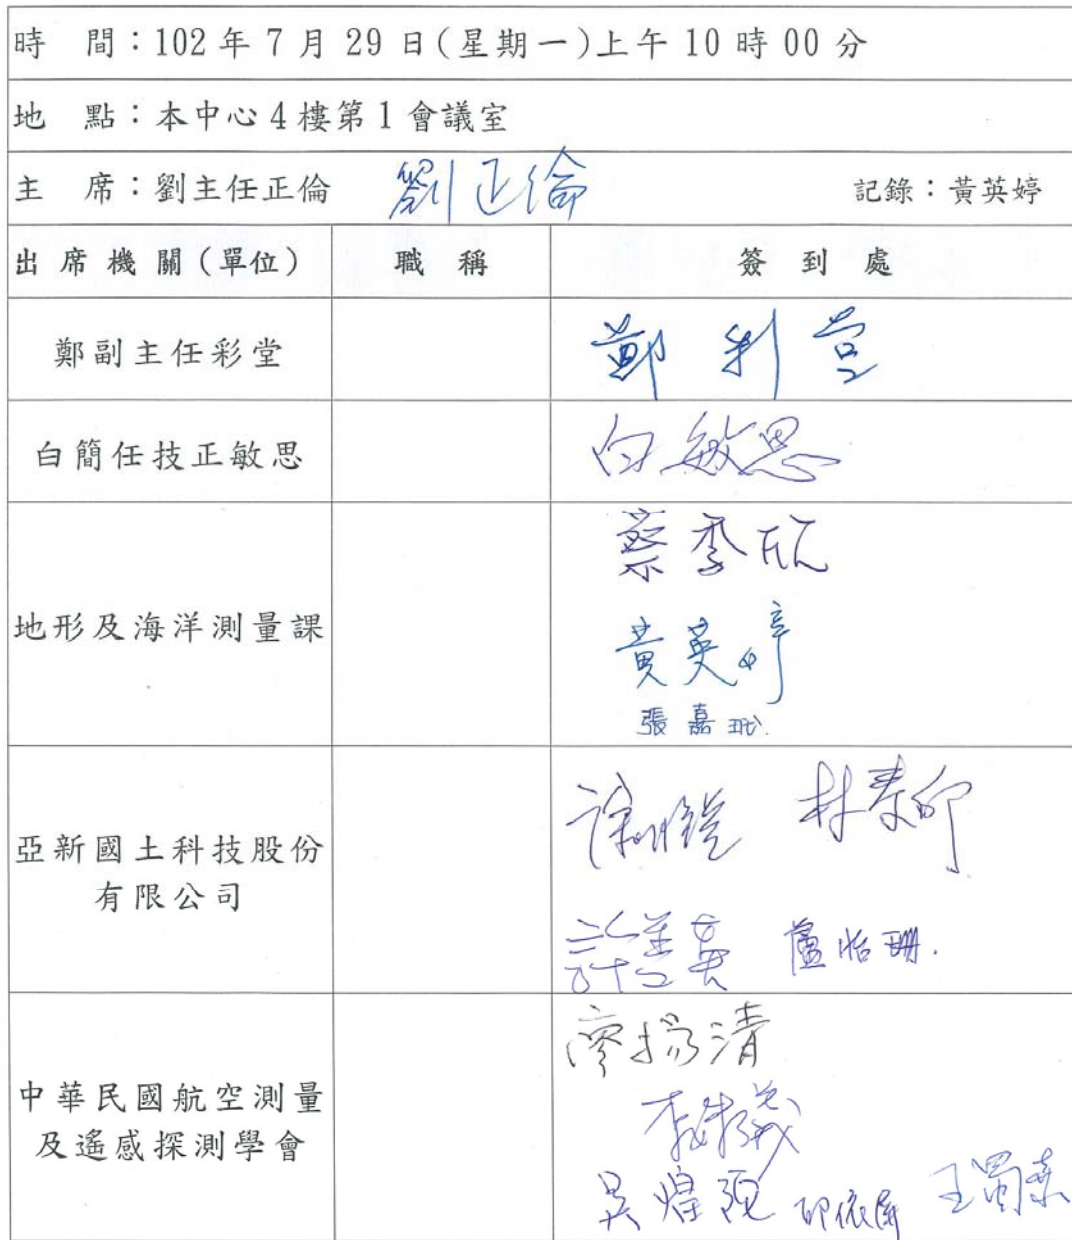 時　間：102 年 7 月 29 日(星期一)上午 10 時 00 分
地　點：本中心 4 樓第 1 會議室
主　席：劉主任正倫 劉正倫 記錄：黃英婷
出席機關(單位) 職稱 簽到處
鄭副主任彩堂 鄭
白簡任技正敏思 白敏思
蔡季欣
地形及海洋測量課
黃英婷
張嘉
亞新國土科技股份
有限公司
盧怡珊.
廖揚清
中華民國航空測量
及遙感探測學會
吳煌 王蜀嘉